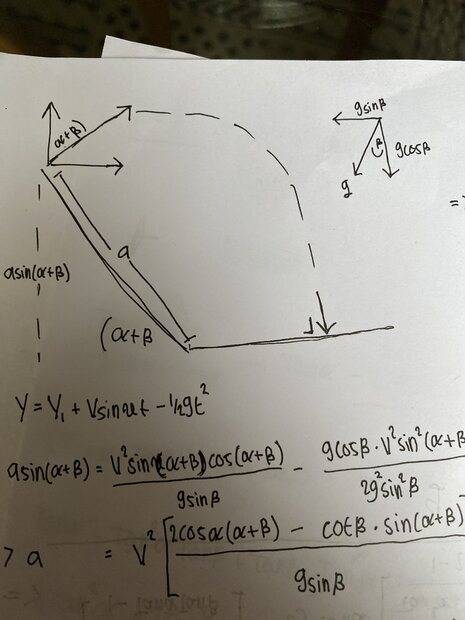 α+β)
gsinβ
β
gcosβ
g
=
a
asin(α+β)
(α+β
Y = Y₁ + Vsinαt - 1/2gt²
asin(α+β) = V²sin(α+β)cos(α+β) / gsinβ - gcosβ · V²sin²(α+β / 2g²sin²β
> a = V² [ 2cosα(α+β) - cotβ · sin(α+β) / gsinβ